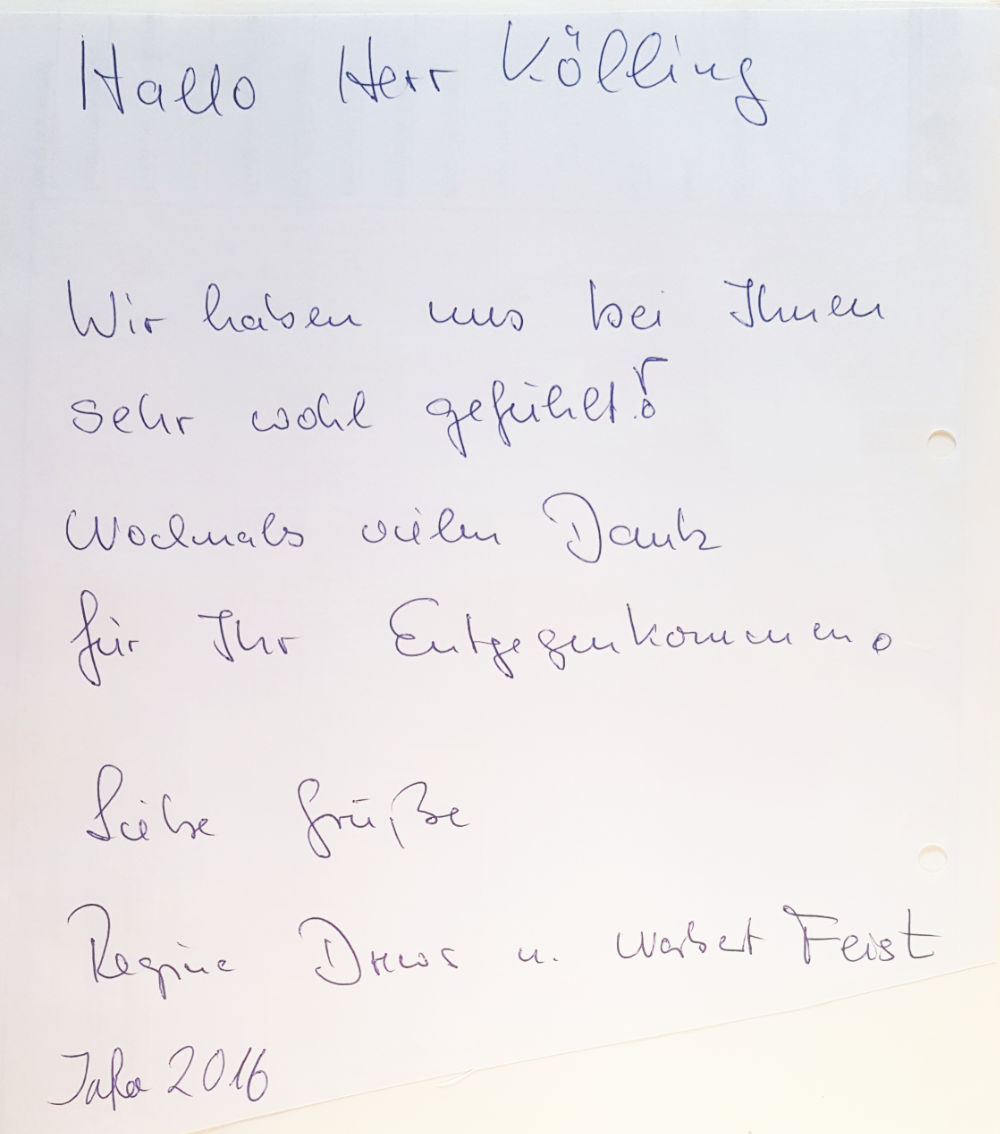 Hallo Herr Kölling
Wir haben uns bei Ihnen
sehr wohl gefühlt!
Nochmals vielen Dank
für Ihr Entgegenkommen.
Liebe Grüße
Regine Drews u. Norbert Feist
2016